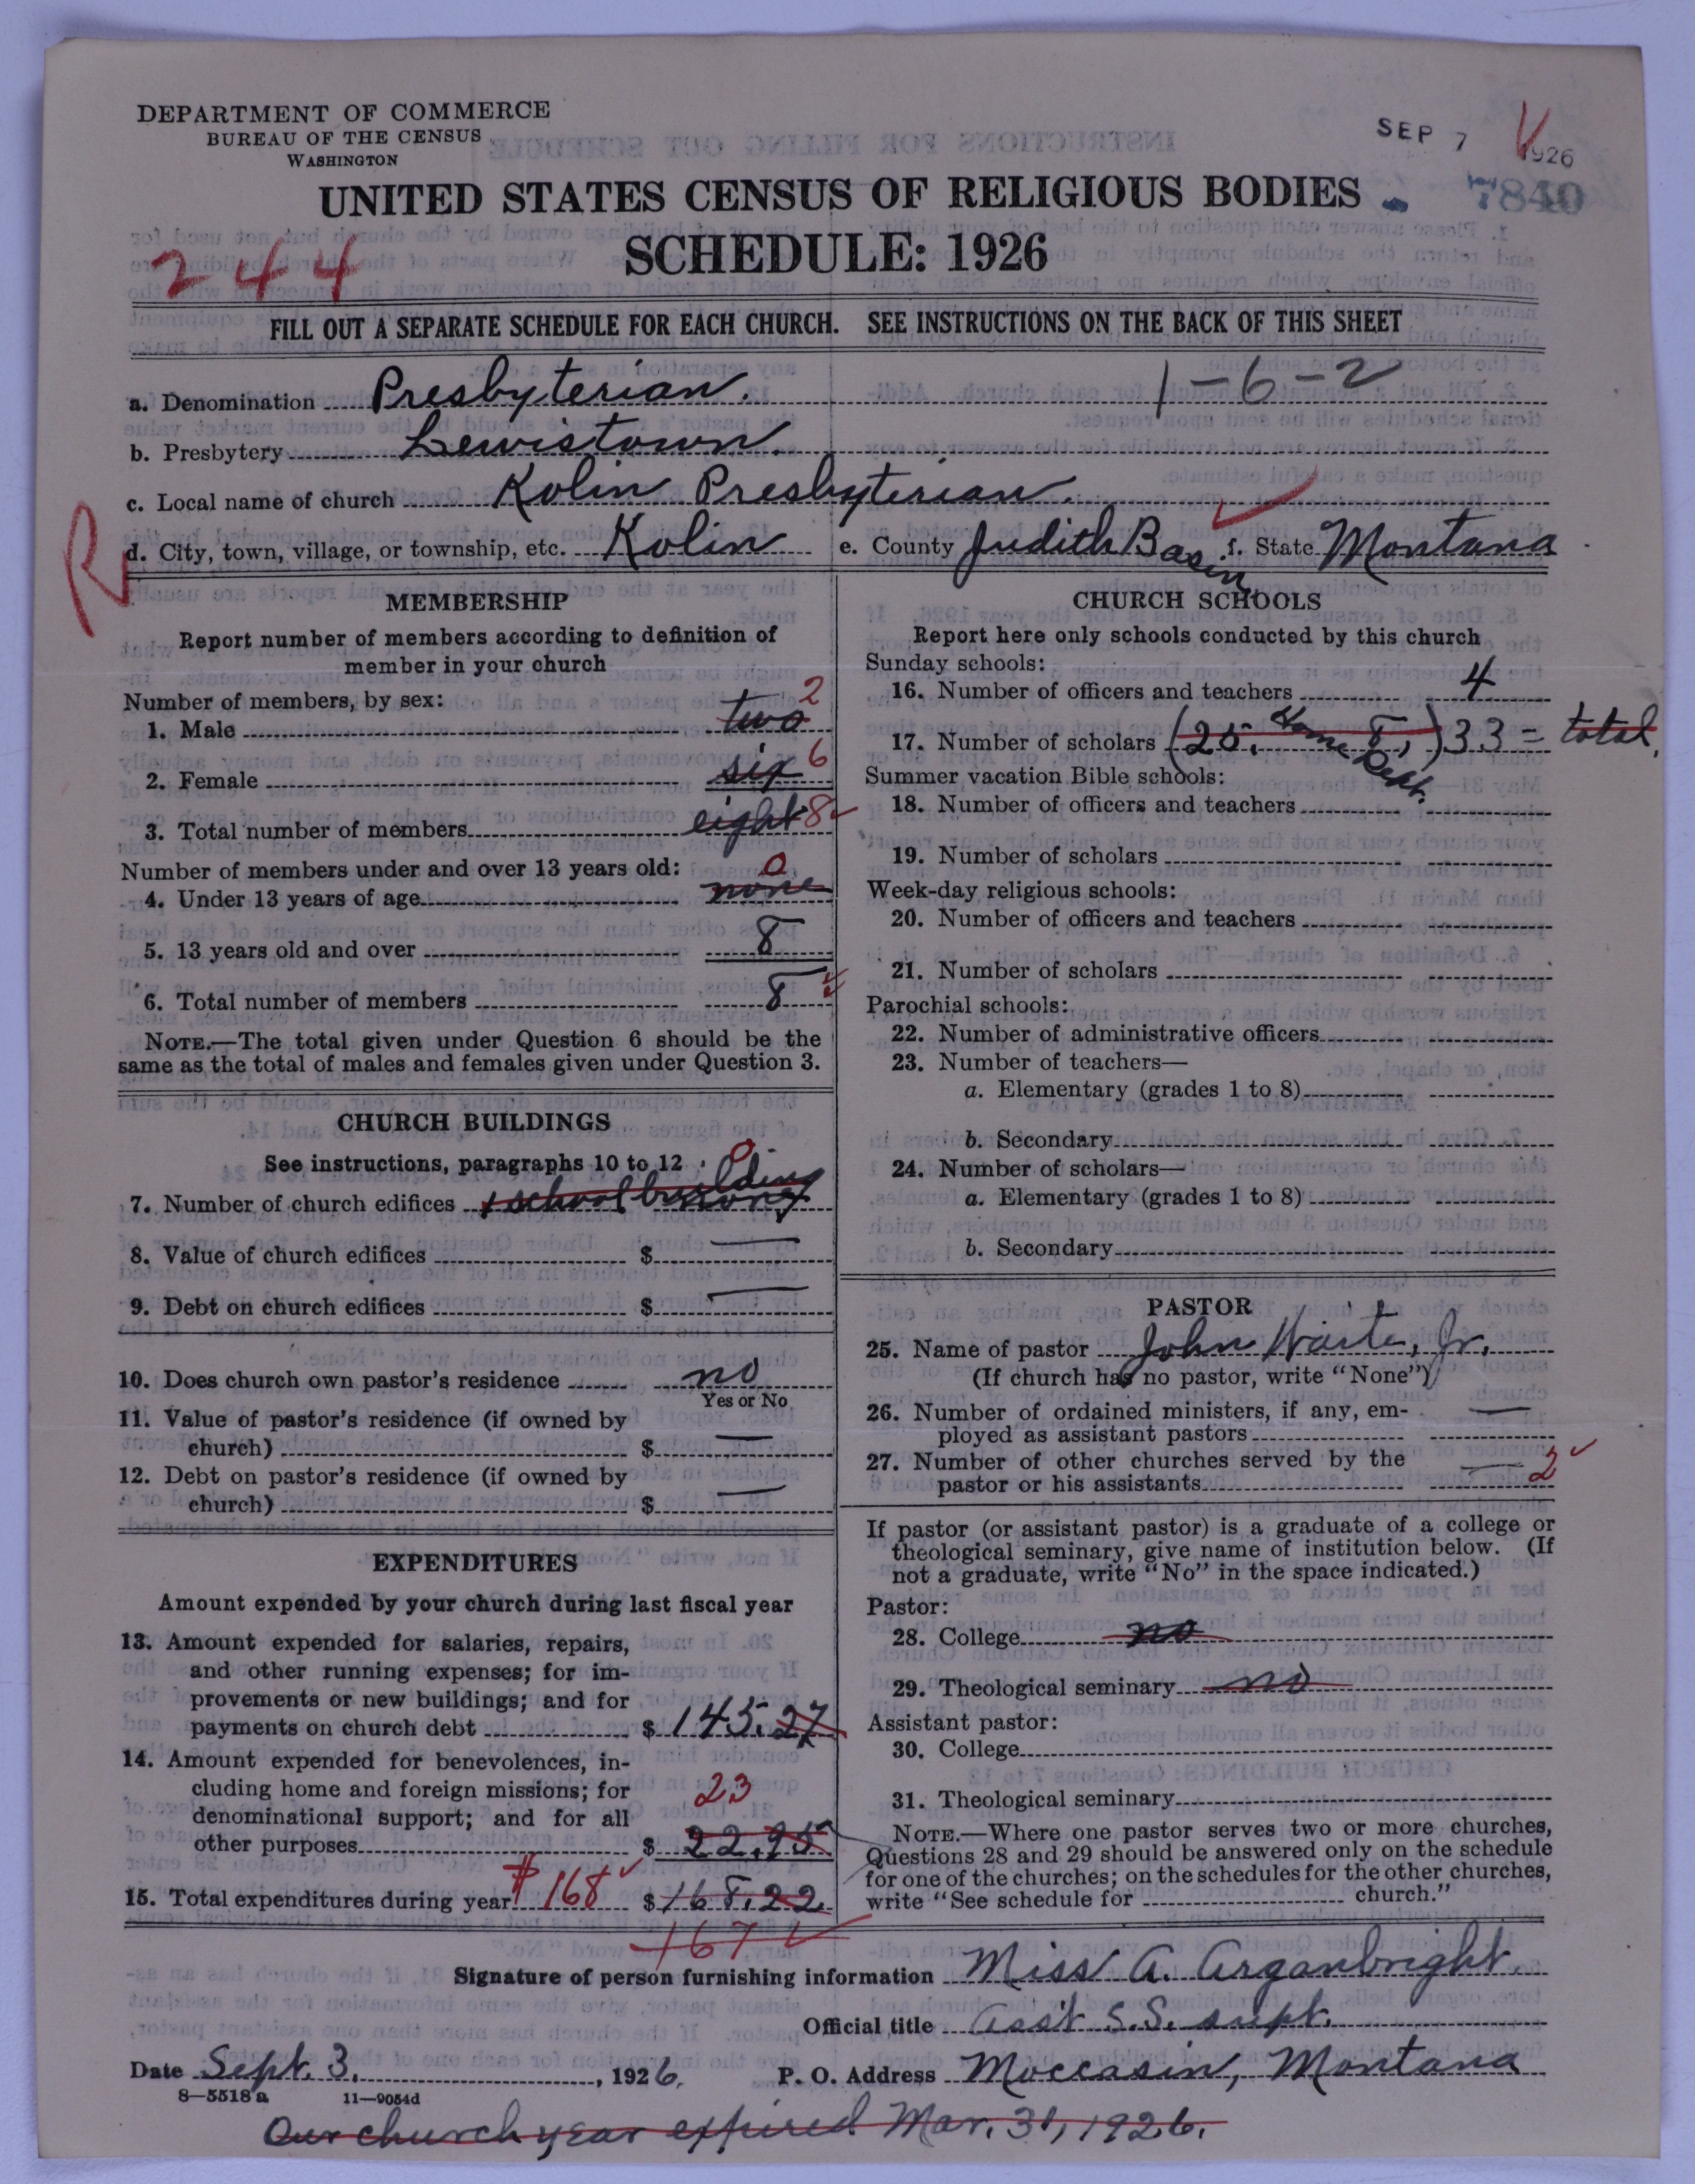 DEPARTMENT OF COMMERCE
BUREAU OF THE CENSUS
WASHINGTON
SEP 7 1926
7840
UNITED STATES CENSUS OF RELIGIOUS BODIES
SCHEDULE: 1926
244
FILL OUT A SEPARATE SCHEDULE FOR EACH CHURCH. SEE INSTRUCTIONS ON THE BACK OF THIS SHEET
a. Denomination Presbyterian. 1-6-2
b. Presbytery Lewistown.
c. Local name of church Kolin Presbyterian.
R
d. City, town, village, or township, etc. Kolin e. County Judith Basin f. State Montana
MEMBERSHIP
Report number of members according to definition of
member in your church
Number of members, by sex:
1. Male two 2
2. Female six 6
3. Total number of members eight 8
Number of members under and over 13 years old:
4. Under 13 years of age none 0
5. 13 years old and over 8
6. Total number of members 8
NOTE.—The total given under Question 6 should be the
same as the total of males and females given under Question 3.
CHURCH BUILDINGS
See instructions, paragraphs 10 to 12
0
7. Number of church edifices school building
8. Value of church edifices $ —
9. Debt on church edifices $ —
10. Does church own pastor's residence no
Yes or No
11. Value of pastor's residence (if owned by
church) $ —
12. Debt on pastor's residence (if owned by
church) $ —
EXPENDITURES
Amount expended by your church during last fiscal year
13. Amount expended for salaries, repairs,
and other running expenses; for im-
provements or new buildings; and for
payments on church debt $ 145.27
14. Amount expended for benevolences, in-
cluding home and foreign missions; for
denominational support; and for all
other purposes $ 22.95
23
15. Total expenditures during year $168 $ 168.22
167
CHURCH SCHOOLS
Report here only schools conducted by this church
Sunday schools:
16. Number of officers and teachers 4
17. Number of scholars (25, Home Dept. 8,) 33 = total.
Summer vacation Bible schools:
18. Number of officers and teachers
19. Number of scholars
Week-day religious schools:
20. Number of officers and teachers
21. Number of scholars
Parochial schools:
22. Number of administrative officers
23. Number of teachers—
a. Elementary (grades 1 to 8)
b. Secondary
24. Number of scholars—
a. Elementary (grades 1 to 8)
b. Secondary
PASTOR
25. Name of pastor John Waite, Jr.
(If church has no pastor, write "None")
26. Number of ordained ministers, if any, em-
ployed as assistant pastors —
27. Number of other churches served by the
pastor or his assistants — 2
If pastor (or assistant pastor) is a graduate of a college or
theological seminary, give name of institution below. (If
not a graduate, write "No" in the space indicated.)
Pastor:
28. College no
29. Theological seminary no
Assistant pastor:
30. College
31. Theological seminary
NOTE.—Where one pastor serves two or more churches,
Questions 28 and 29 should be answered only on the schedule
for one of the churches; on the schedules for the other churches,
write "See schedule for church."
Signature of person furnishing information Miss A. Arganbright.
Official title Ass't S.S. supt.
Date Sept. 3, 1926. P. O. Address Moccasin, Montana
8—5518a 11—9054d
Our church year expired Mar. 31, 1926.